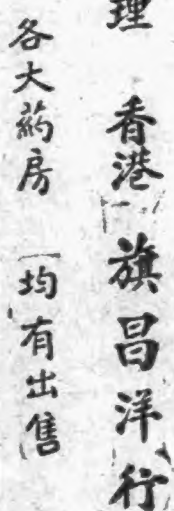 理 香港 旗昌洋行
各大葯房 均有出售